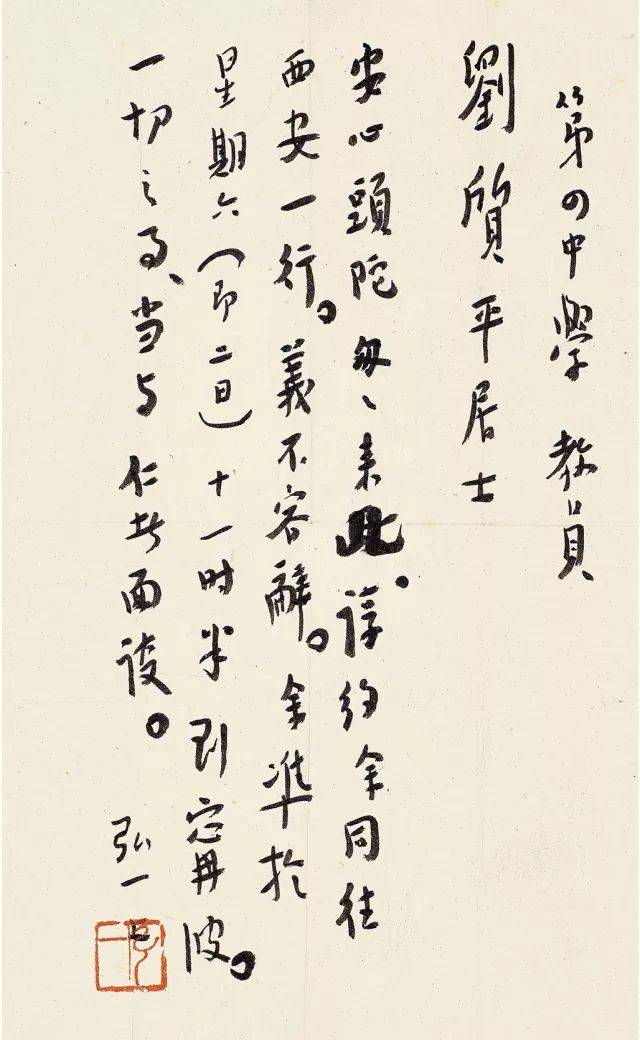 第四中學 教員
劉質平居士
安心頭陀匆々来此。諄約余同往
西安一行。義不容辭。余準於
星期六（即二日）十一时半到甯波。
一切之事、当与仁者面談。
弘一上